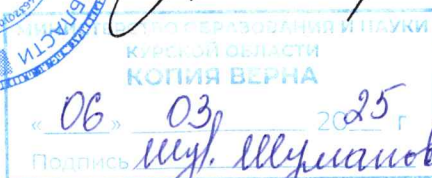 ОБЛАСТИ
МИНИСТЕРСТВО ОБРАЗОВАНИЯ И НАУКИ
КУРСКОЙ ОБЛАСТИ
КОПИЯ ВЕРНА
«06» 03 2025 г
Подпись